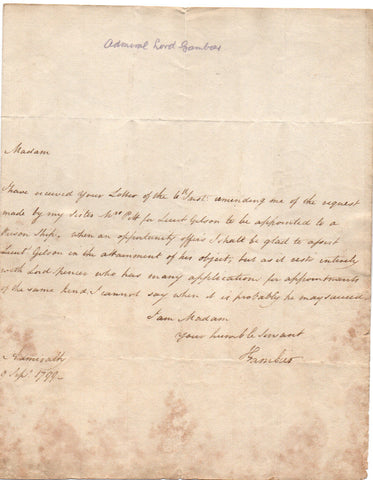 Admiral Lord Gambier
Madam
I have received your Letter of the 6th Inst. reminding me of the request
made by my sister Mrs Pitt for Lieut Gibson to be appointed to a
Prison Ship, when an opportunity offers I shall be glad to assist
Lieut Gibson in the attainment of his object, but as it rests entirely
with Lord Spencer who has many applications for appointments
of the same kind I cannot say when it is probable he may succeed
I am Madam
Your humble Servant
JGambier
Sept. 1799